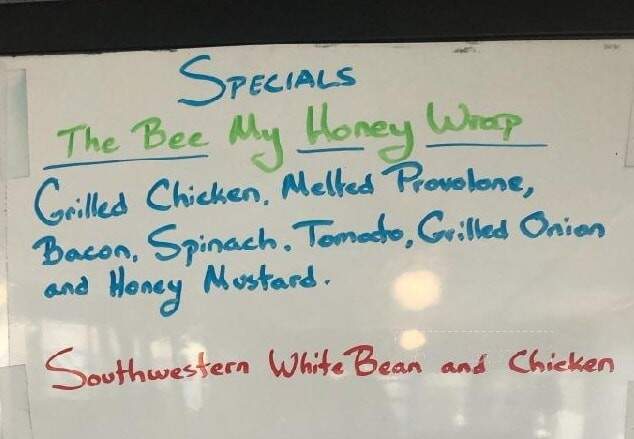 SPECIALS
The Bee My Honey Wrap
Grilled Chicken, Melted Provolone,
Bacon, Spinach, Tomato, Grilled Onion
and Honey Mustard.
Southwestern White Bean and Chicken